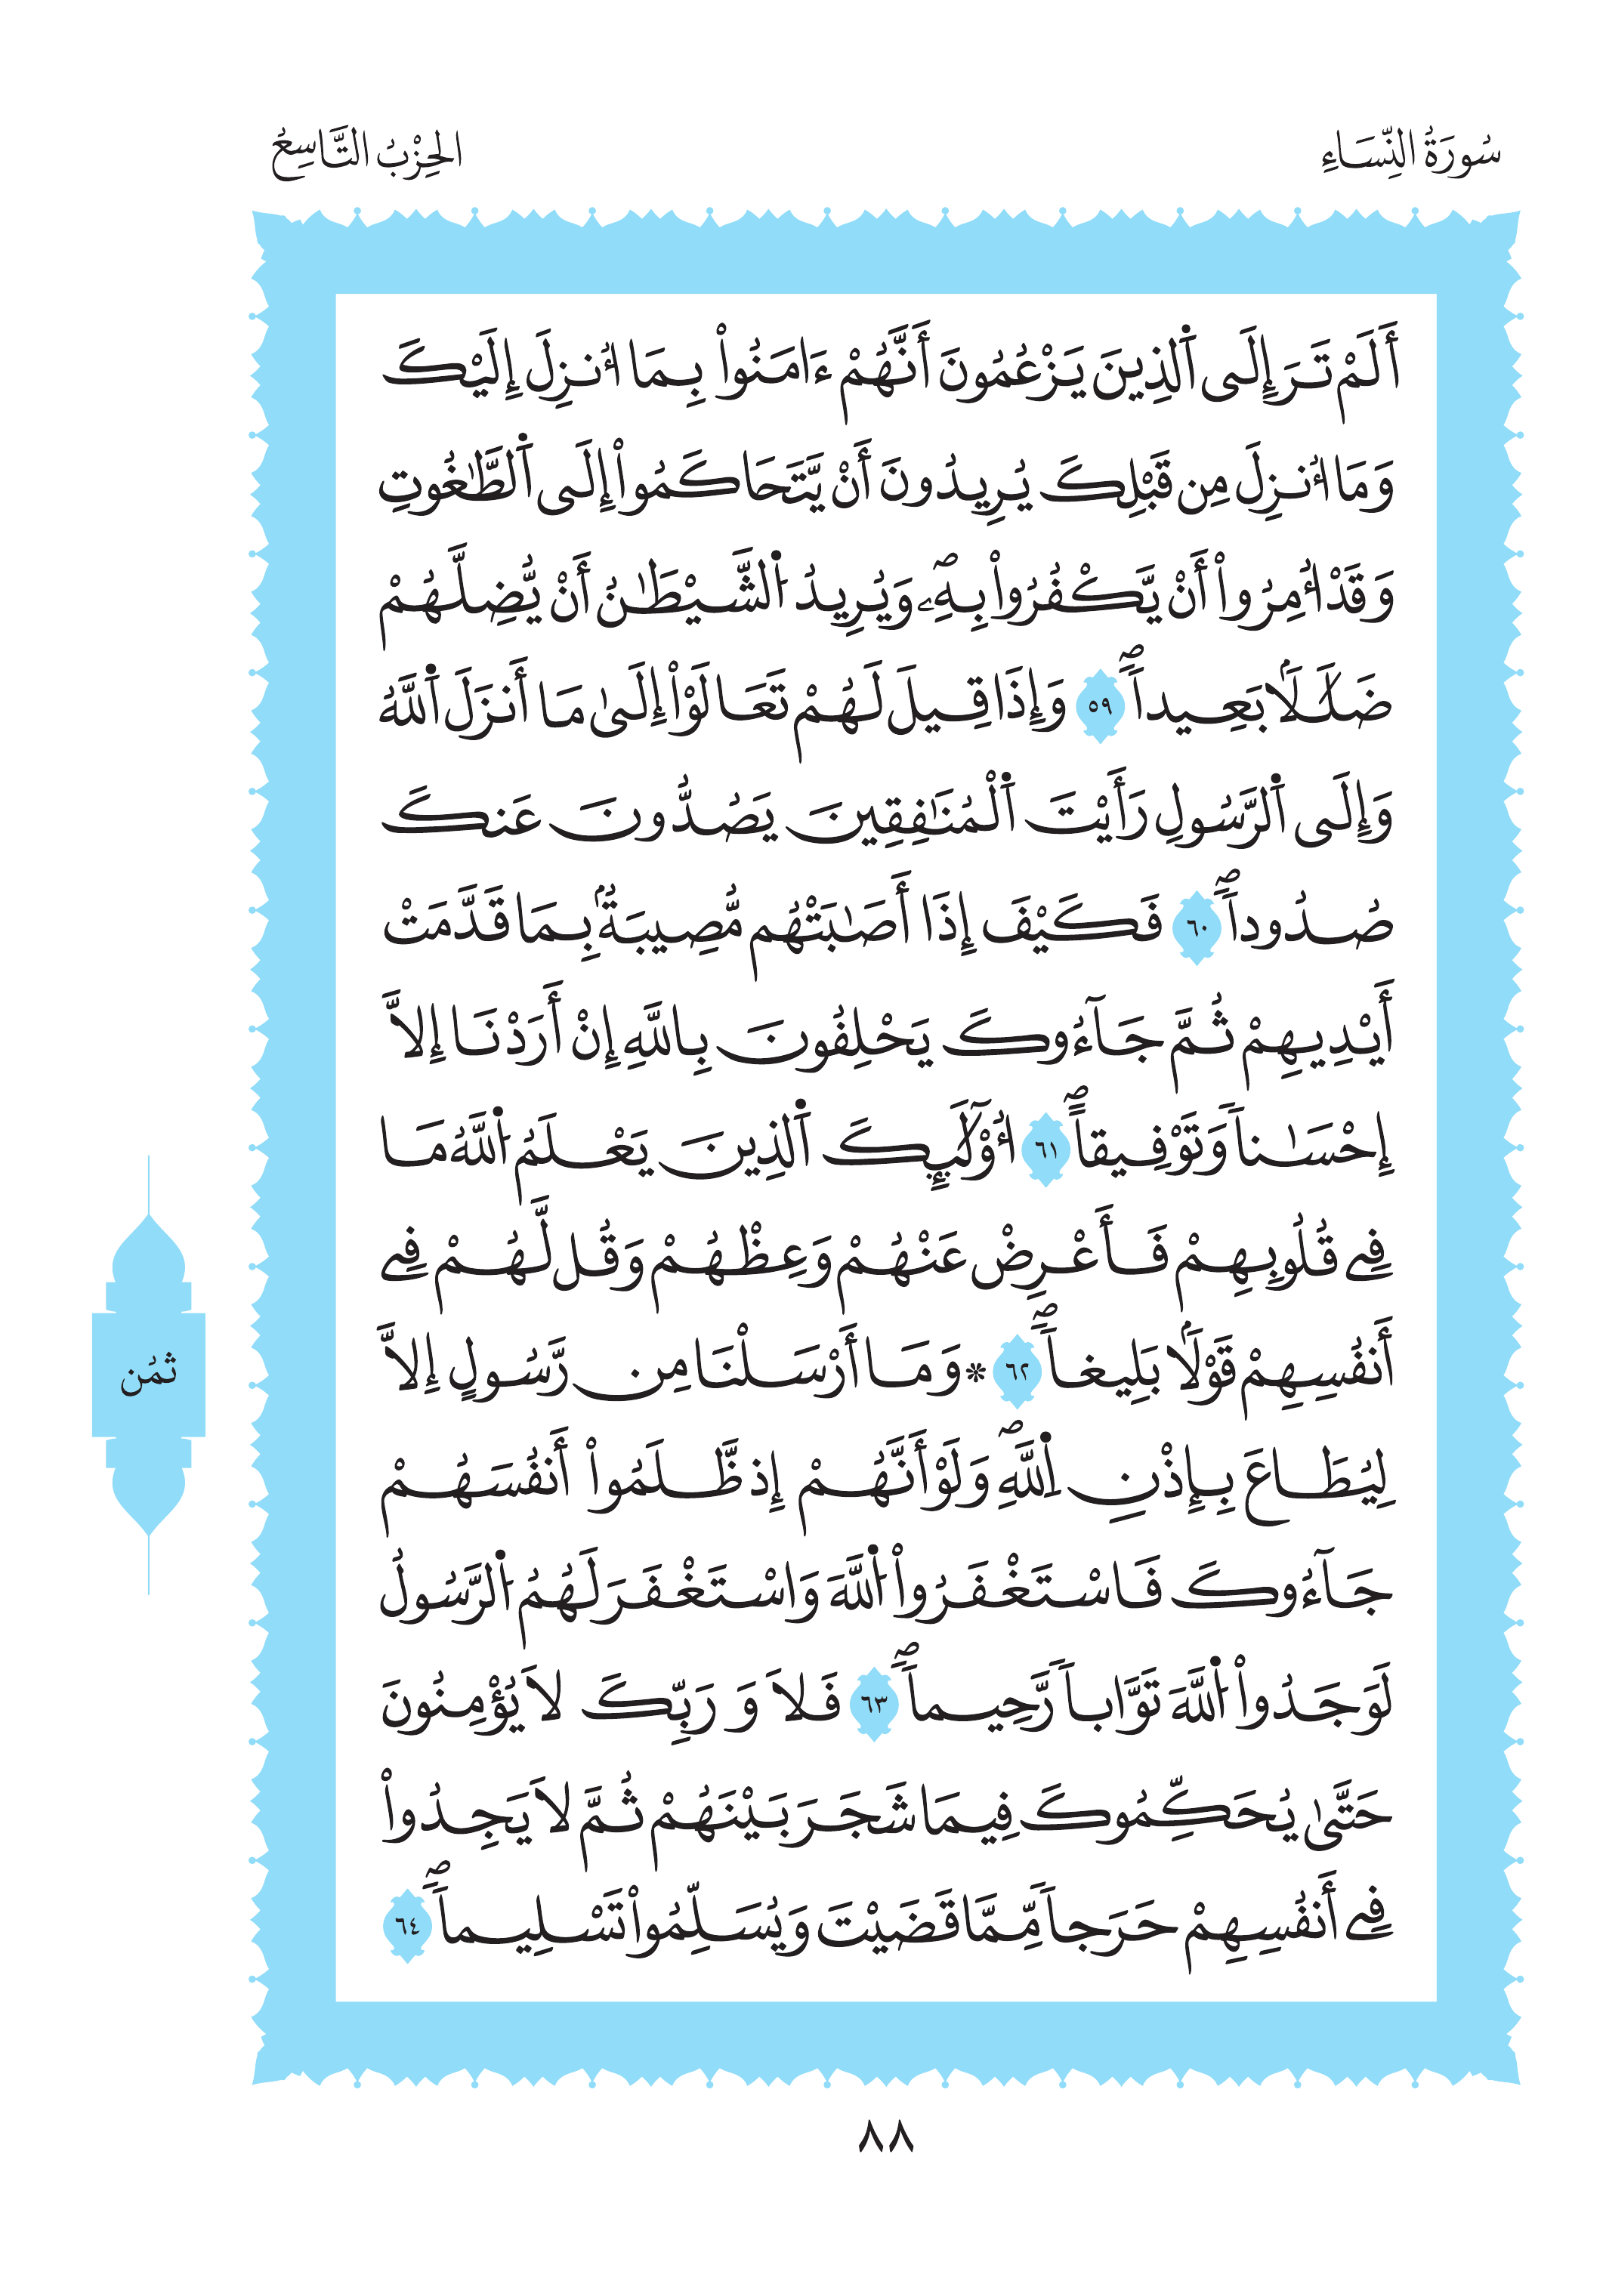 سُورَةُ النِّسَاءِ
الحِزْبُ التَّاسِعُ
أَلَمْ تَرَ إِلَى اَ۬لذِينَ يَزْعُمُونَ أَنَّهُمْ ءَامَنُواْ بِمَا أُنزِلَ إِلَيْكَ
وَمَا أُنزِلَ مِن قَبْلِكَ يُرِيدُونَ أَنْ يَّتَحَاكَمُواْ إِلَى اَ۬لطَّٰغُوتِ
وَقَدْ أُمِرُواْ أَنْ يَّكْفُرُواْ بِهِۦۖ وَيُرِيدُ اُ۬لشَّيْطَٰنُ أَنْ يُّضِلَّهُمْ
ضَلَٰلَاۢ بَعِيداًۖ ٥٩ وَإِذَا قِيلَ لَهُمْ تَعَالَوْاْ إِلَىٰ مَا أَنزَلَ اَ۬للَّهُ
وَإِلَى اَ۬لرَّسُولِ رَأَيْتَ اَ۬لْمُنَٰفِقِينَ يَصُدُّونَ عَنكَ
صُدُوداًۖ ٦٠ فَكَيْفَ إِذَا أَصَٰبَتْهُم مُّصِيبَةُۢ بِمَا قَدَّمَتْ
أَيْدِيهِمْ ثُمَّ جَآءُوكَ يَحْلِفُونَ بِاللَّهِ إِنْ أَرَدْنَا إِلاَّ
إِحْسَٰناً وَتَوْفِيقاًۖ ٦١ أُوْلَٰٓئِكَ اَ۬لذِينَ يَعْلَمُ اُ۬للَّهُ مَا
فِے قُلُوبِهِمْ فَأَعْرِضْ عَنْهُمْ وَعِظْهُمْ وَقُل لَّهُمْ فِے
أَنفُسِهِمْ قَوْلَاۢ بَلِيغاًۖ ٦٢ * وَمَا أَرْسَلْنَا مِن رَّسُولٍ إِلاَّ
لِيُطَاعَ بِإِذْنِ اِ۬للَّهِۖ وَلَوْ أَنَّهُمْ إِذ ظَّلَمُواْ أَنفُسَهُمْ
جَآءُوكَ فَاسْتَغْفَرُواْ اُ۬للَّهَ وَاسْتَغْفَرَ لَهُمُ اُ۬لرَّسُولُ
لَوَجَدُواْ اُ۬للَّهَ تَوَّاباً رَّحِيماًۖ ٦٣ فَلاَ وَرَبِّكَ لاَ يُؤْمِنُونَ
حَتَّىٰ يُحَكِّمُوكَ فِيمَا شَجَرَ بَيْنَهُمْ ثُمَّ لاَ يَجِدُواْ
فِے أَنفُسِهِمْ حَرَجاً مِّمَّا قَضَيْتَ وَيُسَلِّمُواْ تَسْلِيماًۖ ٦٤
ثمُن
٨٨